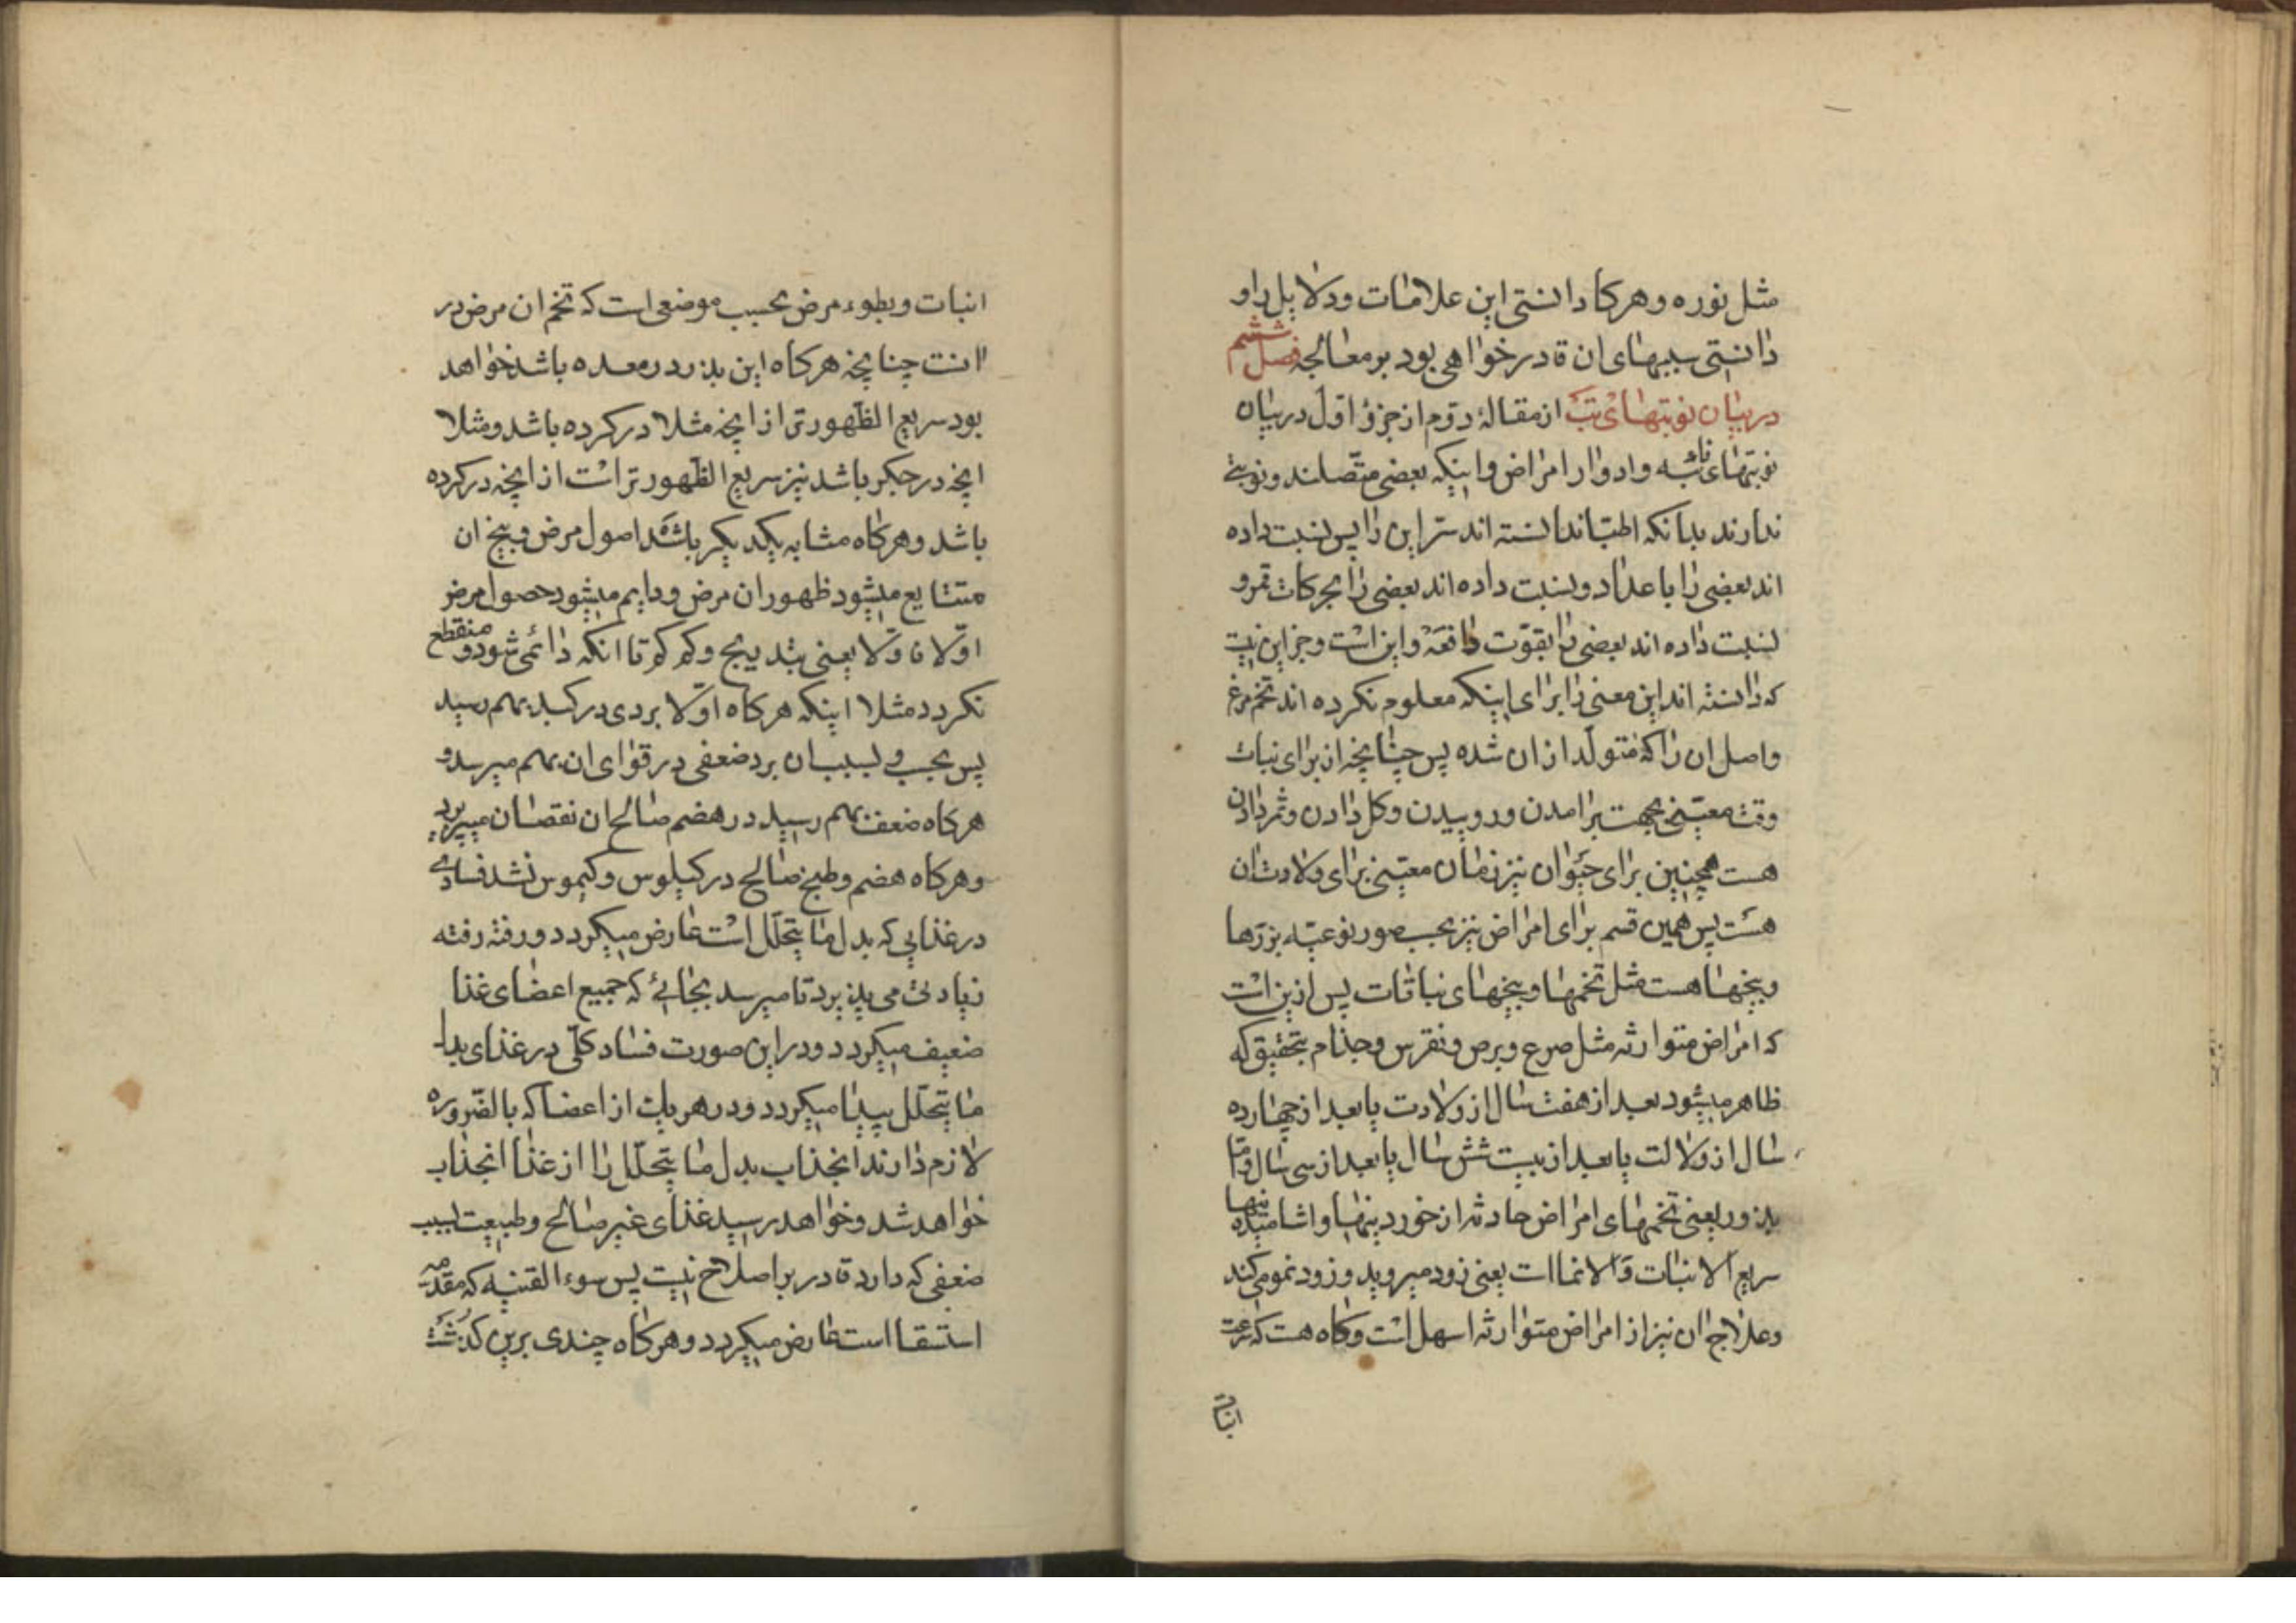 مثل نوره و هرکا دانستی این علامات و دلایل را و
دانستی سببهای ان قادر خواهی بود بر معالجه فصل ششم
در بیان نوبتهای تب از مقالهٔ دوّم از جزؤ اوّل در بیان
نوبتهای نائبه و ادوار امراض و اینکه بعضی متّصلند و نوبتی
ندارند بدانکه اطبّا ندانسته اند سرّ این را پس نسبت داده
اند بعضی را باعداد و نسبت داده اند بعضی را بحرکات قمر و
نسبت داده اند بعضی را بقوّت دافعه و این است و جز این نیست
که دانسته اند این معنی را برای اینکه معلوم نکرده اند تخم مرغ
و اصل ان را که متولّد از ان شده پس چنانچه از برای نبات
وقت معیّنی بجهت برامدن و روییدن و کل دادن و ثمر دادن
هست همچنین برای حیوان نیز زمان معیّنی برای ولادت ان
هست پس همین قسم برای امراض نیز بحسب صور نوعیّه بزرها
و بیخها هست مثل تخمها و بیخهای نباتات پس ازین است
که امراض متوارثه مثل صرع و برص و نقرس و جذام بتحقیق که
ظاهر میشود بعد از هفت سال از ولادت یا بعد از چهارده
سال از ولالت یا بعد از بیست شش سال یا بعد از سی سال و امّا
بذور یعنی تخمهای امراض حادثه از خوردینها و اشامیدنیها
سریع الانبات و الانما است یعنی زود میروید و زود نمو می کند
و علاج ان نیز از امراض متوارثه اسهل است و کاه هست که سرعت
انبات
انبات و بطوء مرض بحسب موضعی است که تخم ان مرض در
انست چنانچه هرکاه این بذر در معده باشد خواهد
بود سریع الظهورتر از انچه مثلا در کرده باشد و مثلا
انچه در جکر باشد نیز سریع الظهورتر است از انچه در کرده
باشد و هرکاه مشابه یکدیکر باشد اصول مرض و بیخ ان
متتابع میشود ظهور ان مرض و دایم میشود حصول مرض
اوّلا فاوّلا یعنی بتدریج و کم کم تا انکه دائمی شود و منقطع
نکردد مثلا اینکه هرکاه اوّلا بردی در کبد بهم رسید
پس بسبب ان برد ضعفی در قوای ان بهم میرسد و
هرکاه ضعف بهم رسید در هضم صالح ان نقصان میپزیرد
و هرکاه هضم و طبخ صالح در کیلوس و کیموس نشد فسادی
در غذایی که بدل ما یتحلّل است عارض میکردد و رفته رفته
زیادتی می پذیرد تا میرسد بجائی که جمیع اعضای غذا
ضعیف میکردد و در این صورت فساد کلّی در غذای بدل
ما یتحلّل پیدا میکردد و در هر یک از اعضا که بالضّروره
لازم دارند انجذاب بدل ما یتحلّل را از غذا انجذاب
خواهد شد و خواهد رسید غذای غیر صالح و طبیعت بسبب
ضعفی که دارد قادر بر اصلاح نیست پس سوء القنیه که مقدّمه
استسقا است عارض میکردد و هرکاه چندی برین کذشت